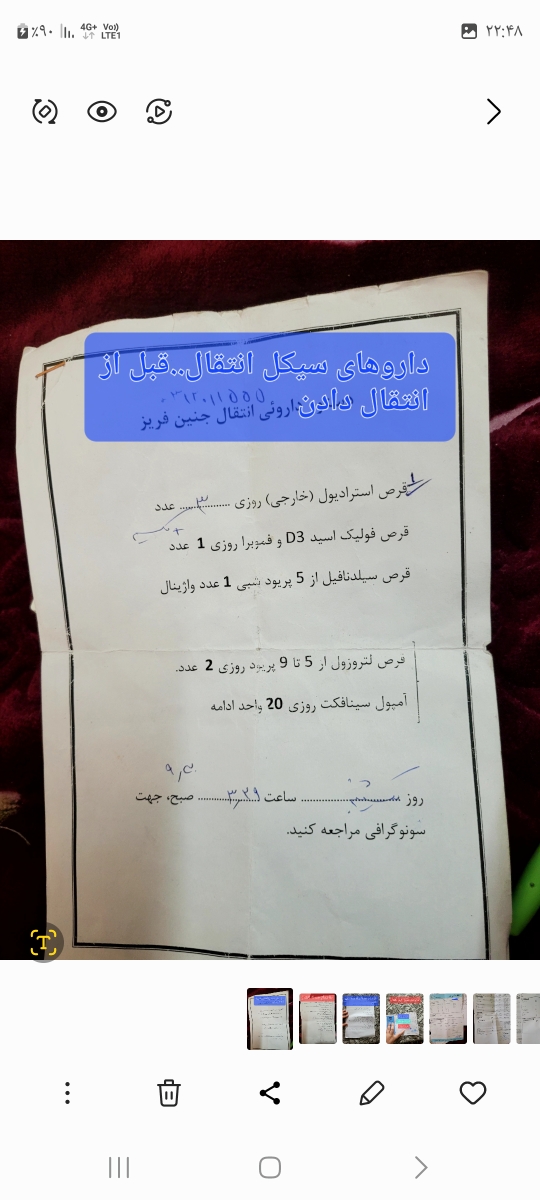 ٪۹۰ 4G+ Vo)) LTE1 ۲۲:۴۸
داروهای سیکل انتقال..قبل از
انتقال دادن
داروئی انتقال جنین فریز
قرص استرادیول (خارجی) روزی ۳ عدد
قرص فولیک اسید D3 و فمویرا روزی 1 عدد
قرص سیلدنافیل از 5 پریود شبی 1 عدد واژینال
قرص لتروزول از 5 تا 9 پریود روزی 2 عدد.
آمپول سینافکت روزی 20 واحد ادامه
روز ........ ساعت ۳,۲۹ صبح، جهت
سونوگرافی مراجعه کنید.